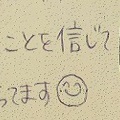 ことを信じて
ってます